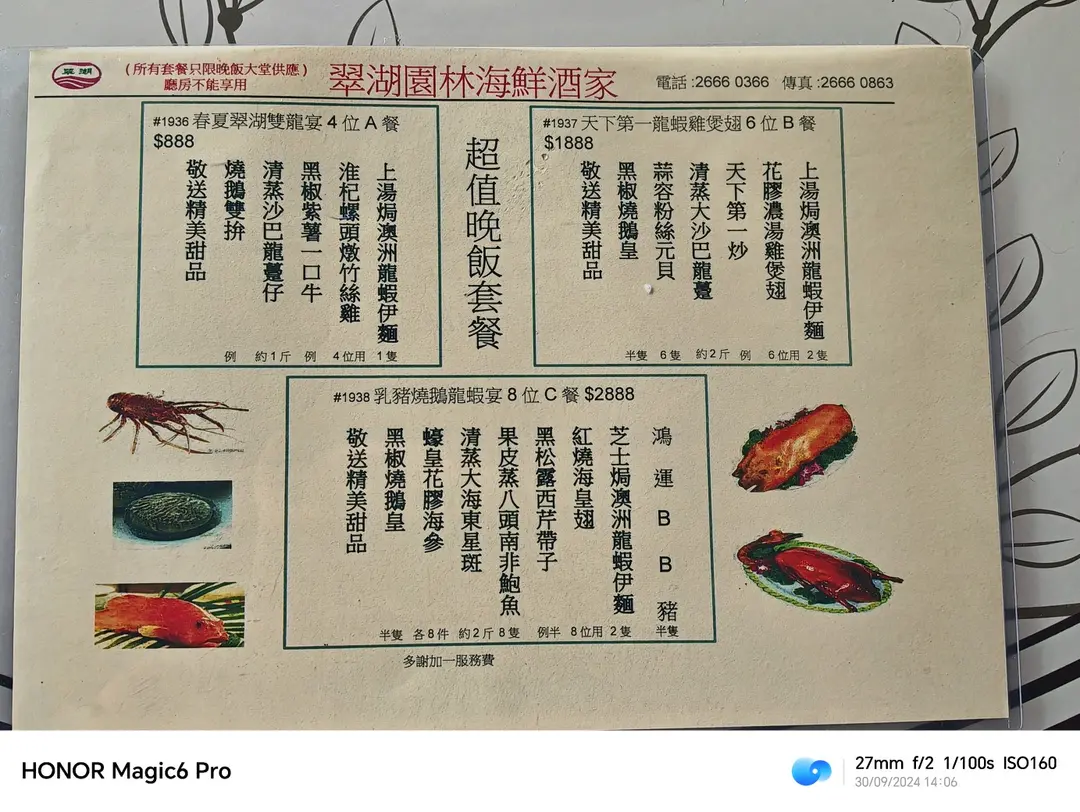 翠湖
(所有套餐只限晚飯大堂供應)
廳房不能享用
翠湖園林海鮮酒家
電話:2666 0366 傳真:2666 0863
#1936 春夏翠湖雙龍宴 4 位 A 餐
$888
上湯焗澳洲龍蝦伊麵
淮杞螺頭燉竹絲雞
黑椒紫薯一口牛
清蒸沙巴龍躉仔
燒鵝雙拚
敬送精美甜品
例 約1斤 例 4位用 1隻
超值晚飯套餐
#1937 天下第一龍蝦雞煲翅 6 位 B 餐
$1888
上湯焗澳洲龍蝦伊麵
花膠濃湯雞煲翅
天下第一炒
清蒸大沙巴龍躉
蒜容粉絲元貝
黑椒燒鵝皇
敬送精美甜品
半隻 6隻 約2斤 例 6位用 2隻
#1938 乳豬燒鵝龍蝦宴 8 位 C 餐 $2888
鴻運BB豬
芝士焗澳洲龍蝦伊麵
紅燒海皇翅
黑松露西芹帶子
果皮蒸八頭南非鮑魚
清蒸大海東星斑
蠔皇花膠海參
黑椒燒鵝皇
敬送精美甜品
半隻 各8件 約2斤 8隻 例半 8位用 2隻 半隻
多謝加一服務費
HONOR Magic6 Pro
27mm f/2 1/100s ISO160
30/09/2024 14:06